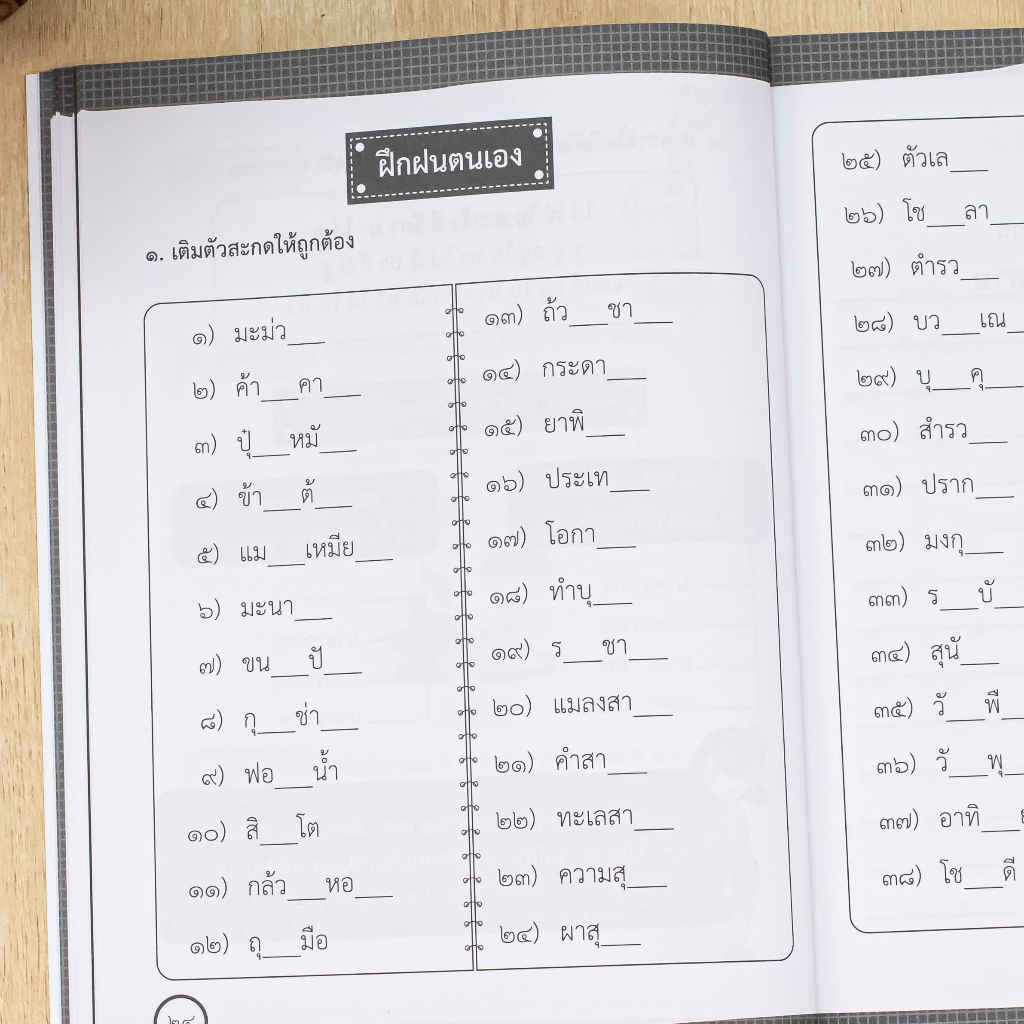 ฝึกฝนตนเอง
๑. เติมตัวสะกดให้ถูกต้อง
๑) มะม่ว___
๒) ค้า___คา___
๓) ปุ๋___หมั___
๔) ข้า___ต้___
๕) แม___เหมีย___
๖) มะนา___
๗) ขน___ปั___
๘) กุ___ช่า___
๙) ฟอ___น้ำ
๑๐) สิ___โต
๑๑) กล้ว___หอ___
๑๒) ถุ___มือ
๑๓) ถ้ว___ชา___
๑๔) กระดา___
๑๕) ยาพิ___
๑๖) ประเท___
๑๗) โอกา___
๑๘) ทำบุ___
๑๙) ร___ชา___
๒๐) แมลงสา___
๒๑) คำสา___
๒๒) ทะเลสา___
๒๓) ความสุ___
๒๔) ผาสุ___
๒๔
๒๕) ตัวเล___
๒๖) โช___ลา___
๒๗) ตำรว
๒๘) บว___เณ___
๒๙) บุ___คุ___
๓๐) สำรว___
๓๑) ปราก___
๓๒) มงกุ___
๓๓) ร___บั___
๓๔) สุนั___
๓๕) วั___พื___
๓๖) วั___พุ___
๓๗) อาทิ___
๓๘) โช___ดี